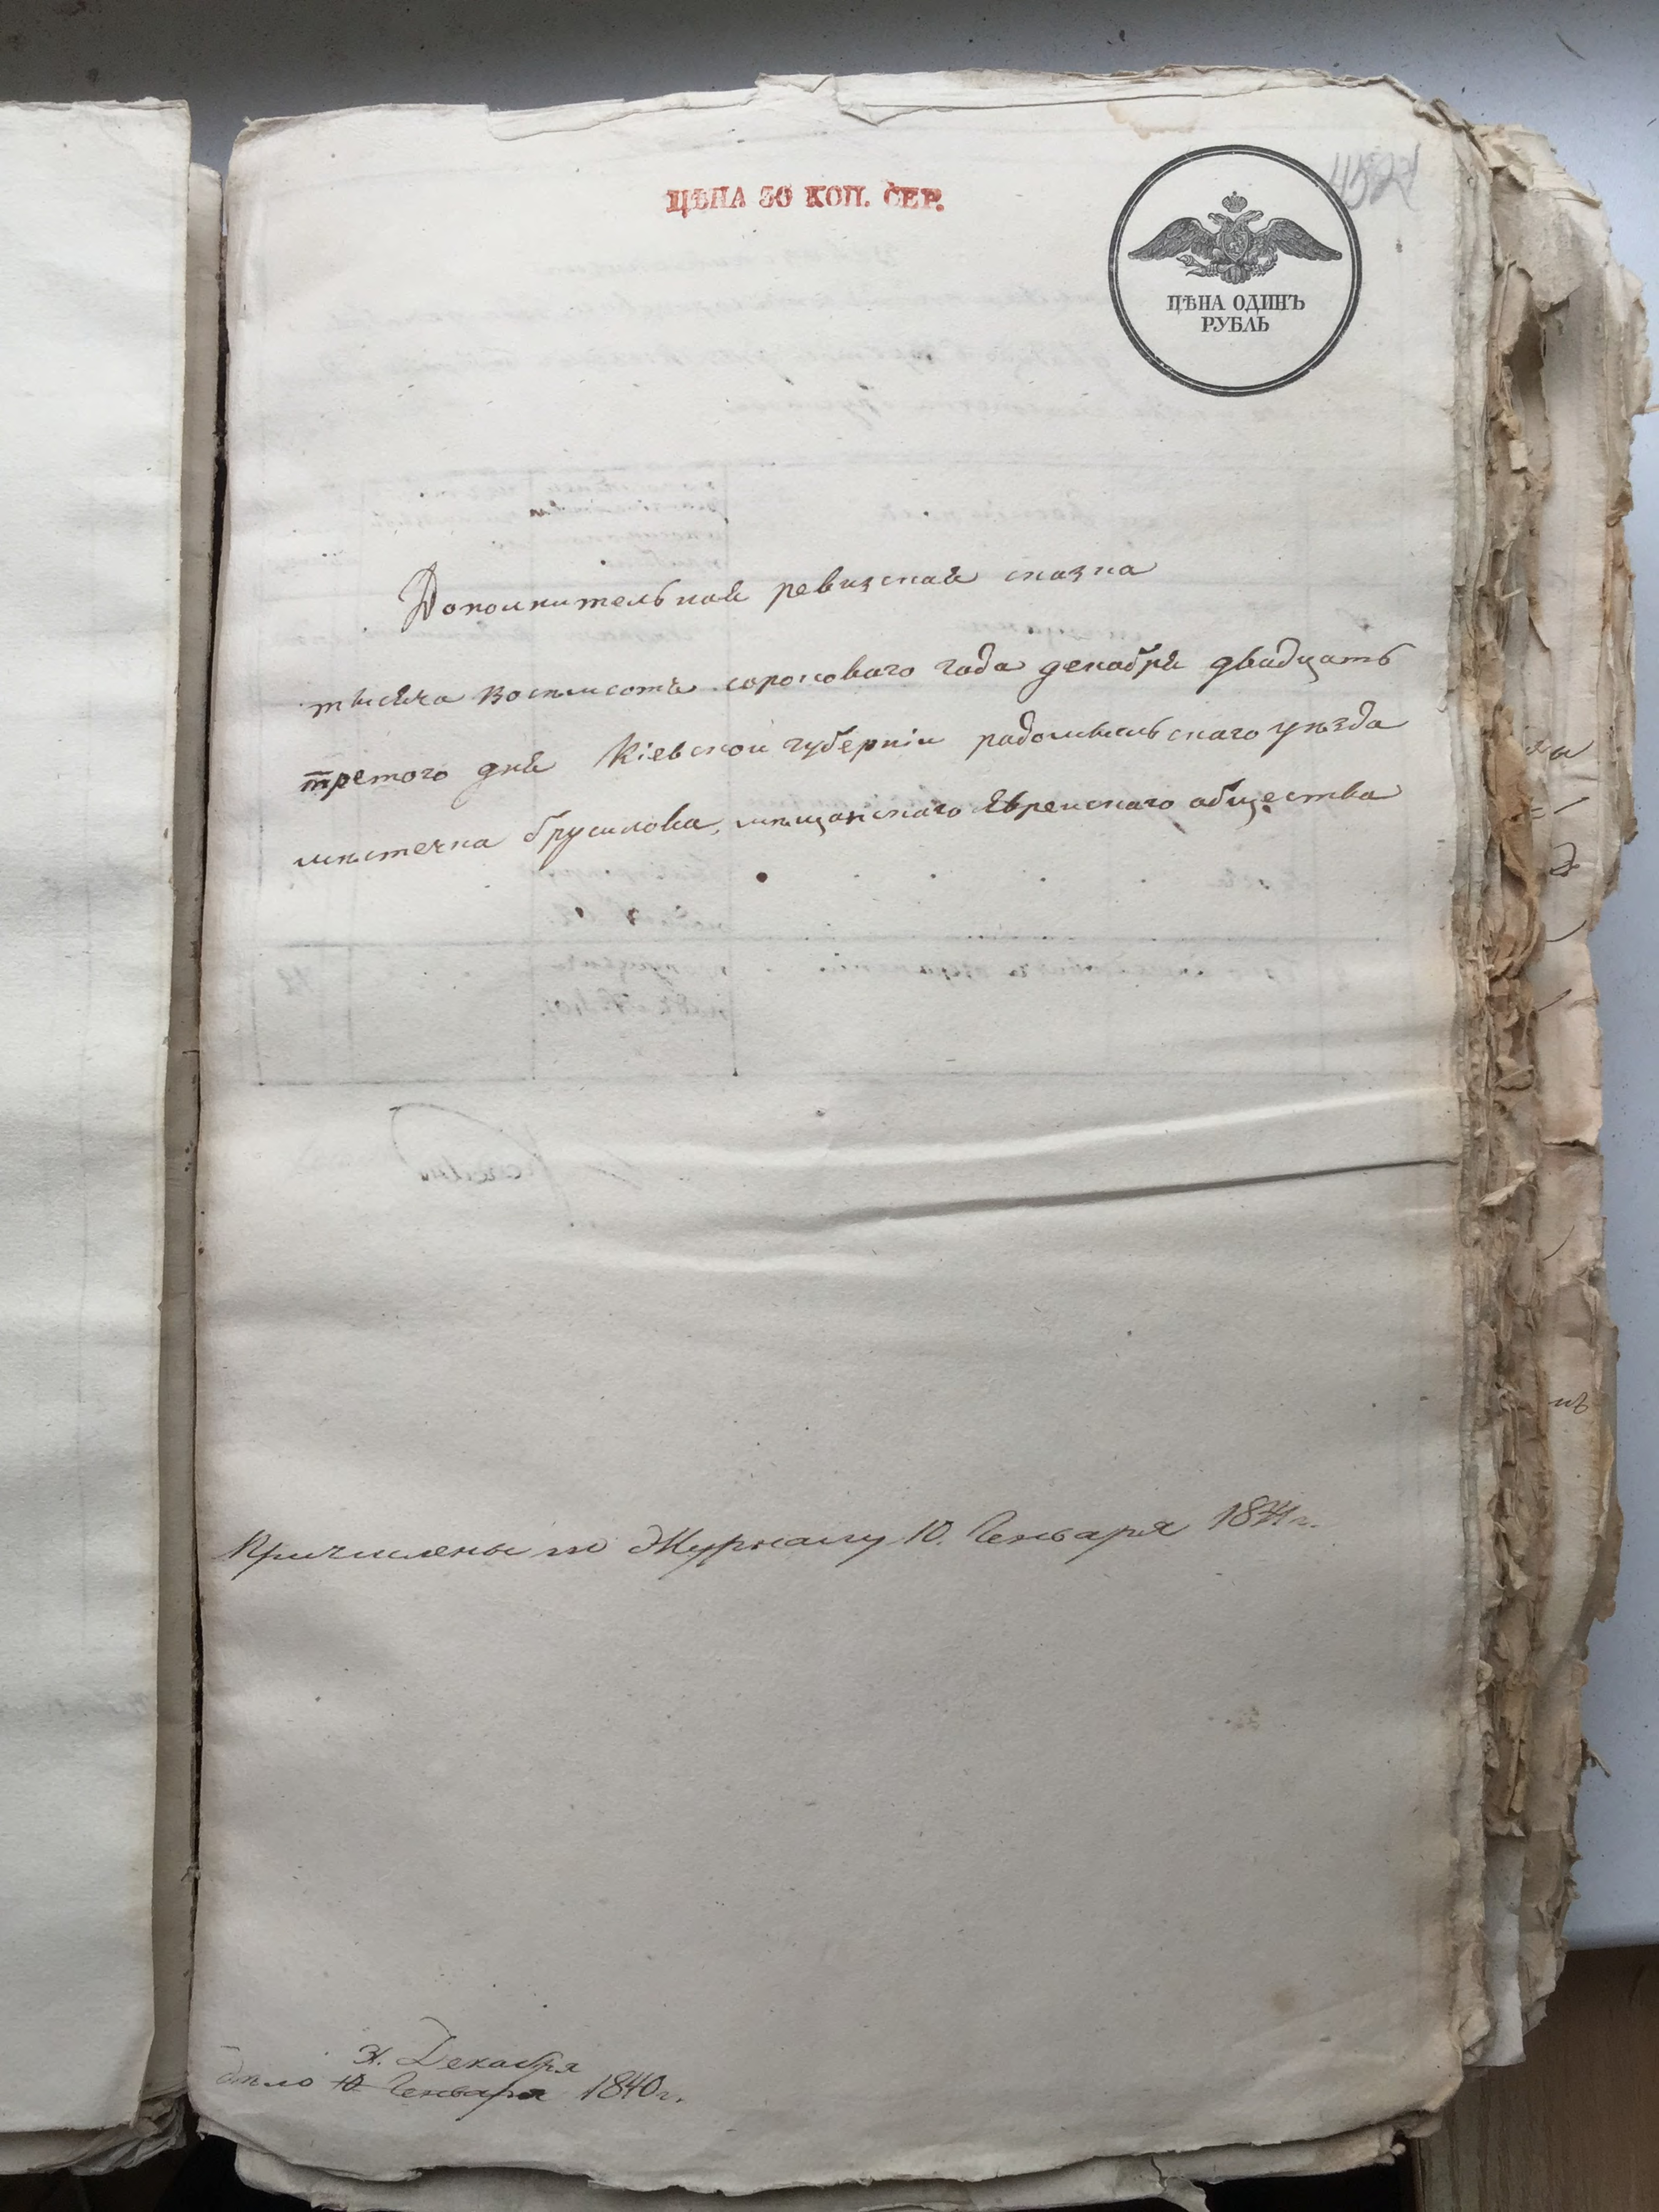 ЦѢНА 30 КОП. СЕР.
ЦѢНА ОДИНЪ
РУБЛЬ
Дополнительная ревизская сказка
тысяча восемсотъ сороковаго года декабря двадцать
третого дня Кіевской губерніи радомысльскаго уѣзда
мѣстечка брусилова, мѣщанскаго Еврейскаго общества
Причислены по Журналу 10. Генваря 1841 г.
31. Декабря
дѣло 10. Генваря 1840 г.